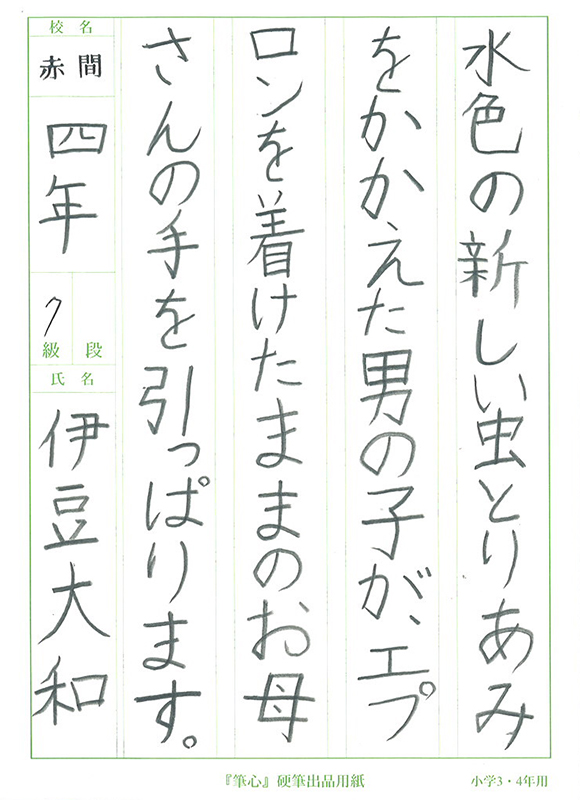 水色の新しい虫とりあみ
をかかえた男の子が、エプ
ロンを着けたままのお母
さんの手を引っぱります。
校名
赤間
四年
7
級 段
氏名
伊豆大和
『筆心』硬筆出品用紙
小学3・4年用